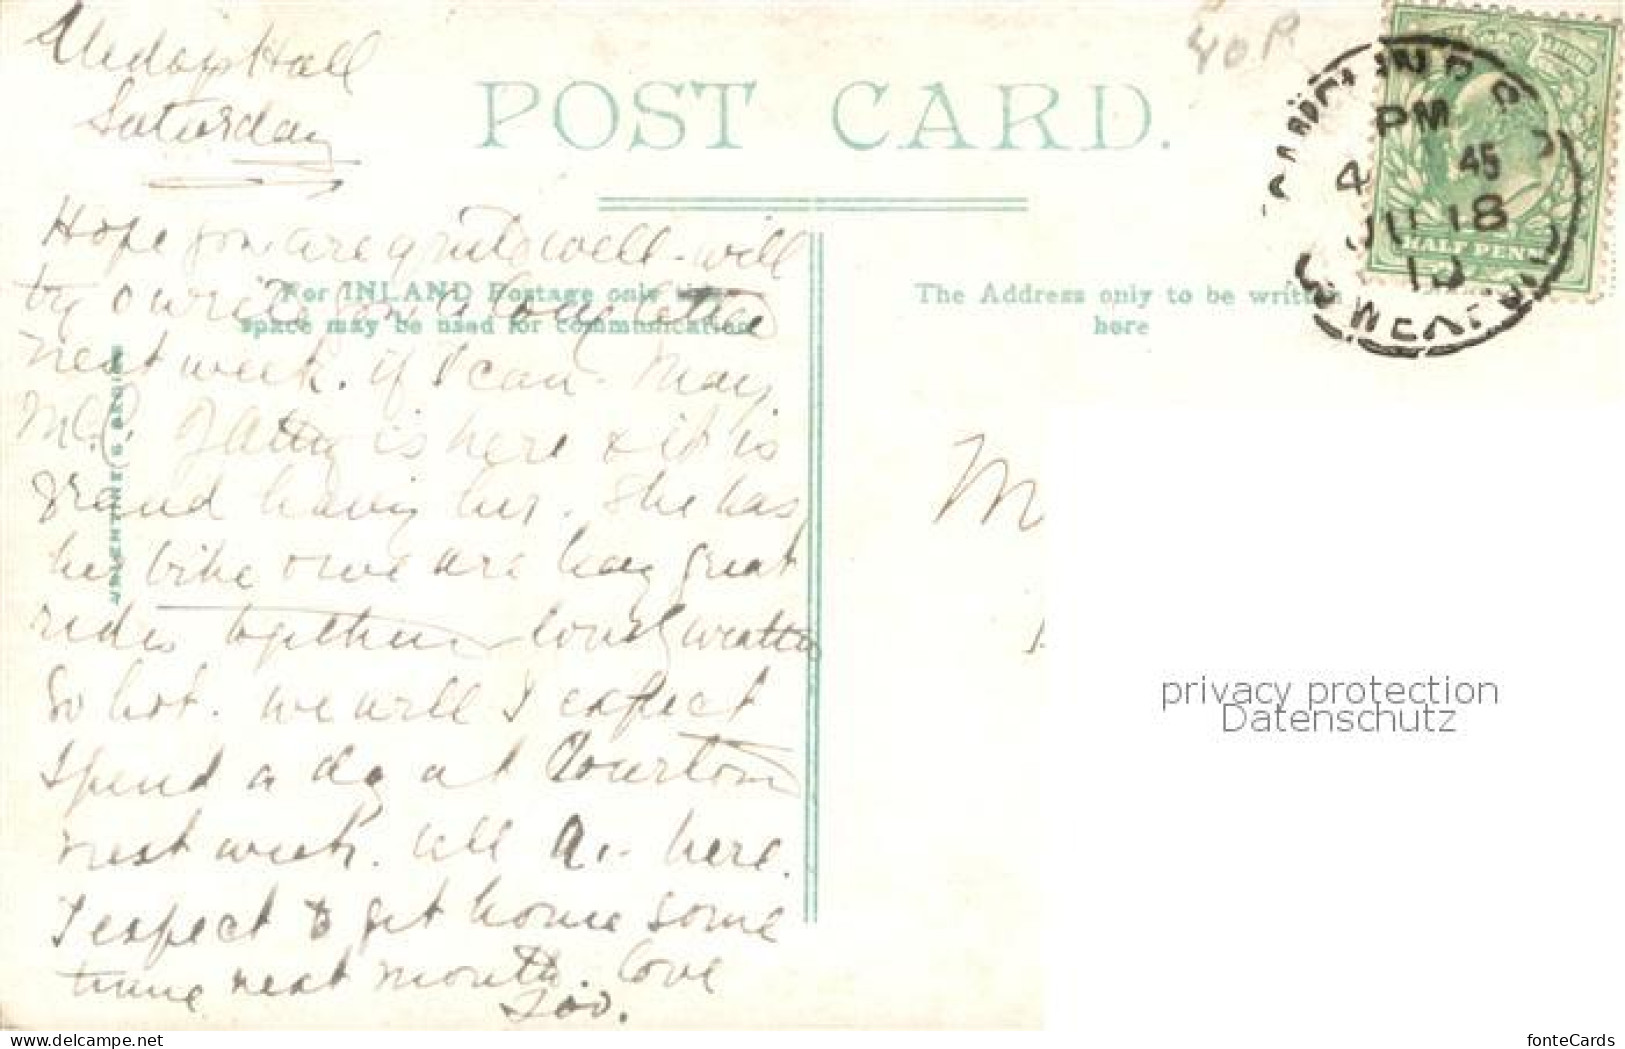 40P
Hall
Saturday
POST CARD.
PM
4 45
JU 18
10
HALF PENNY
WEXFORD
Hope you are quite well - will
try & write you a long letter
For INLAND Postage only this
space may be used for communication
The Address only to be written
here
next week. if I can. May
Mc. is here & it is
VALENTINE'S SERIES
grand having her. She has
her bike & we are having great
rides together lovely weather
So hot. we will I expect
spend a day at Courtown
next week. All A1. here.
I expect to get home some
time next month. Love
M
privacy protection
Datenschutz
www.delcampe.net
fonteCards